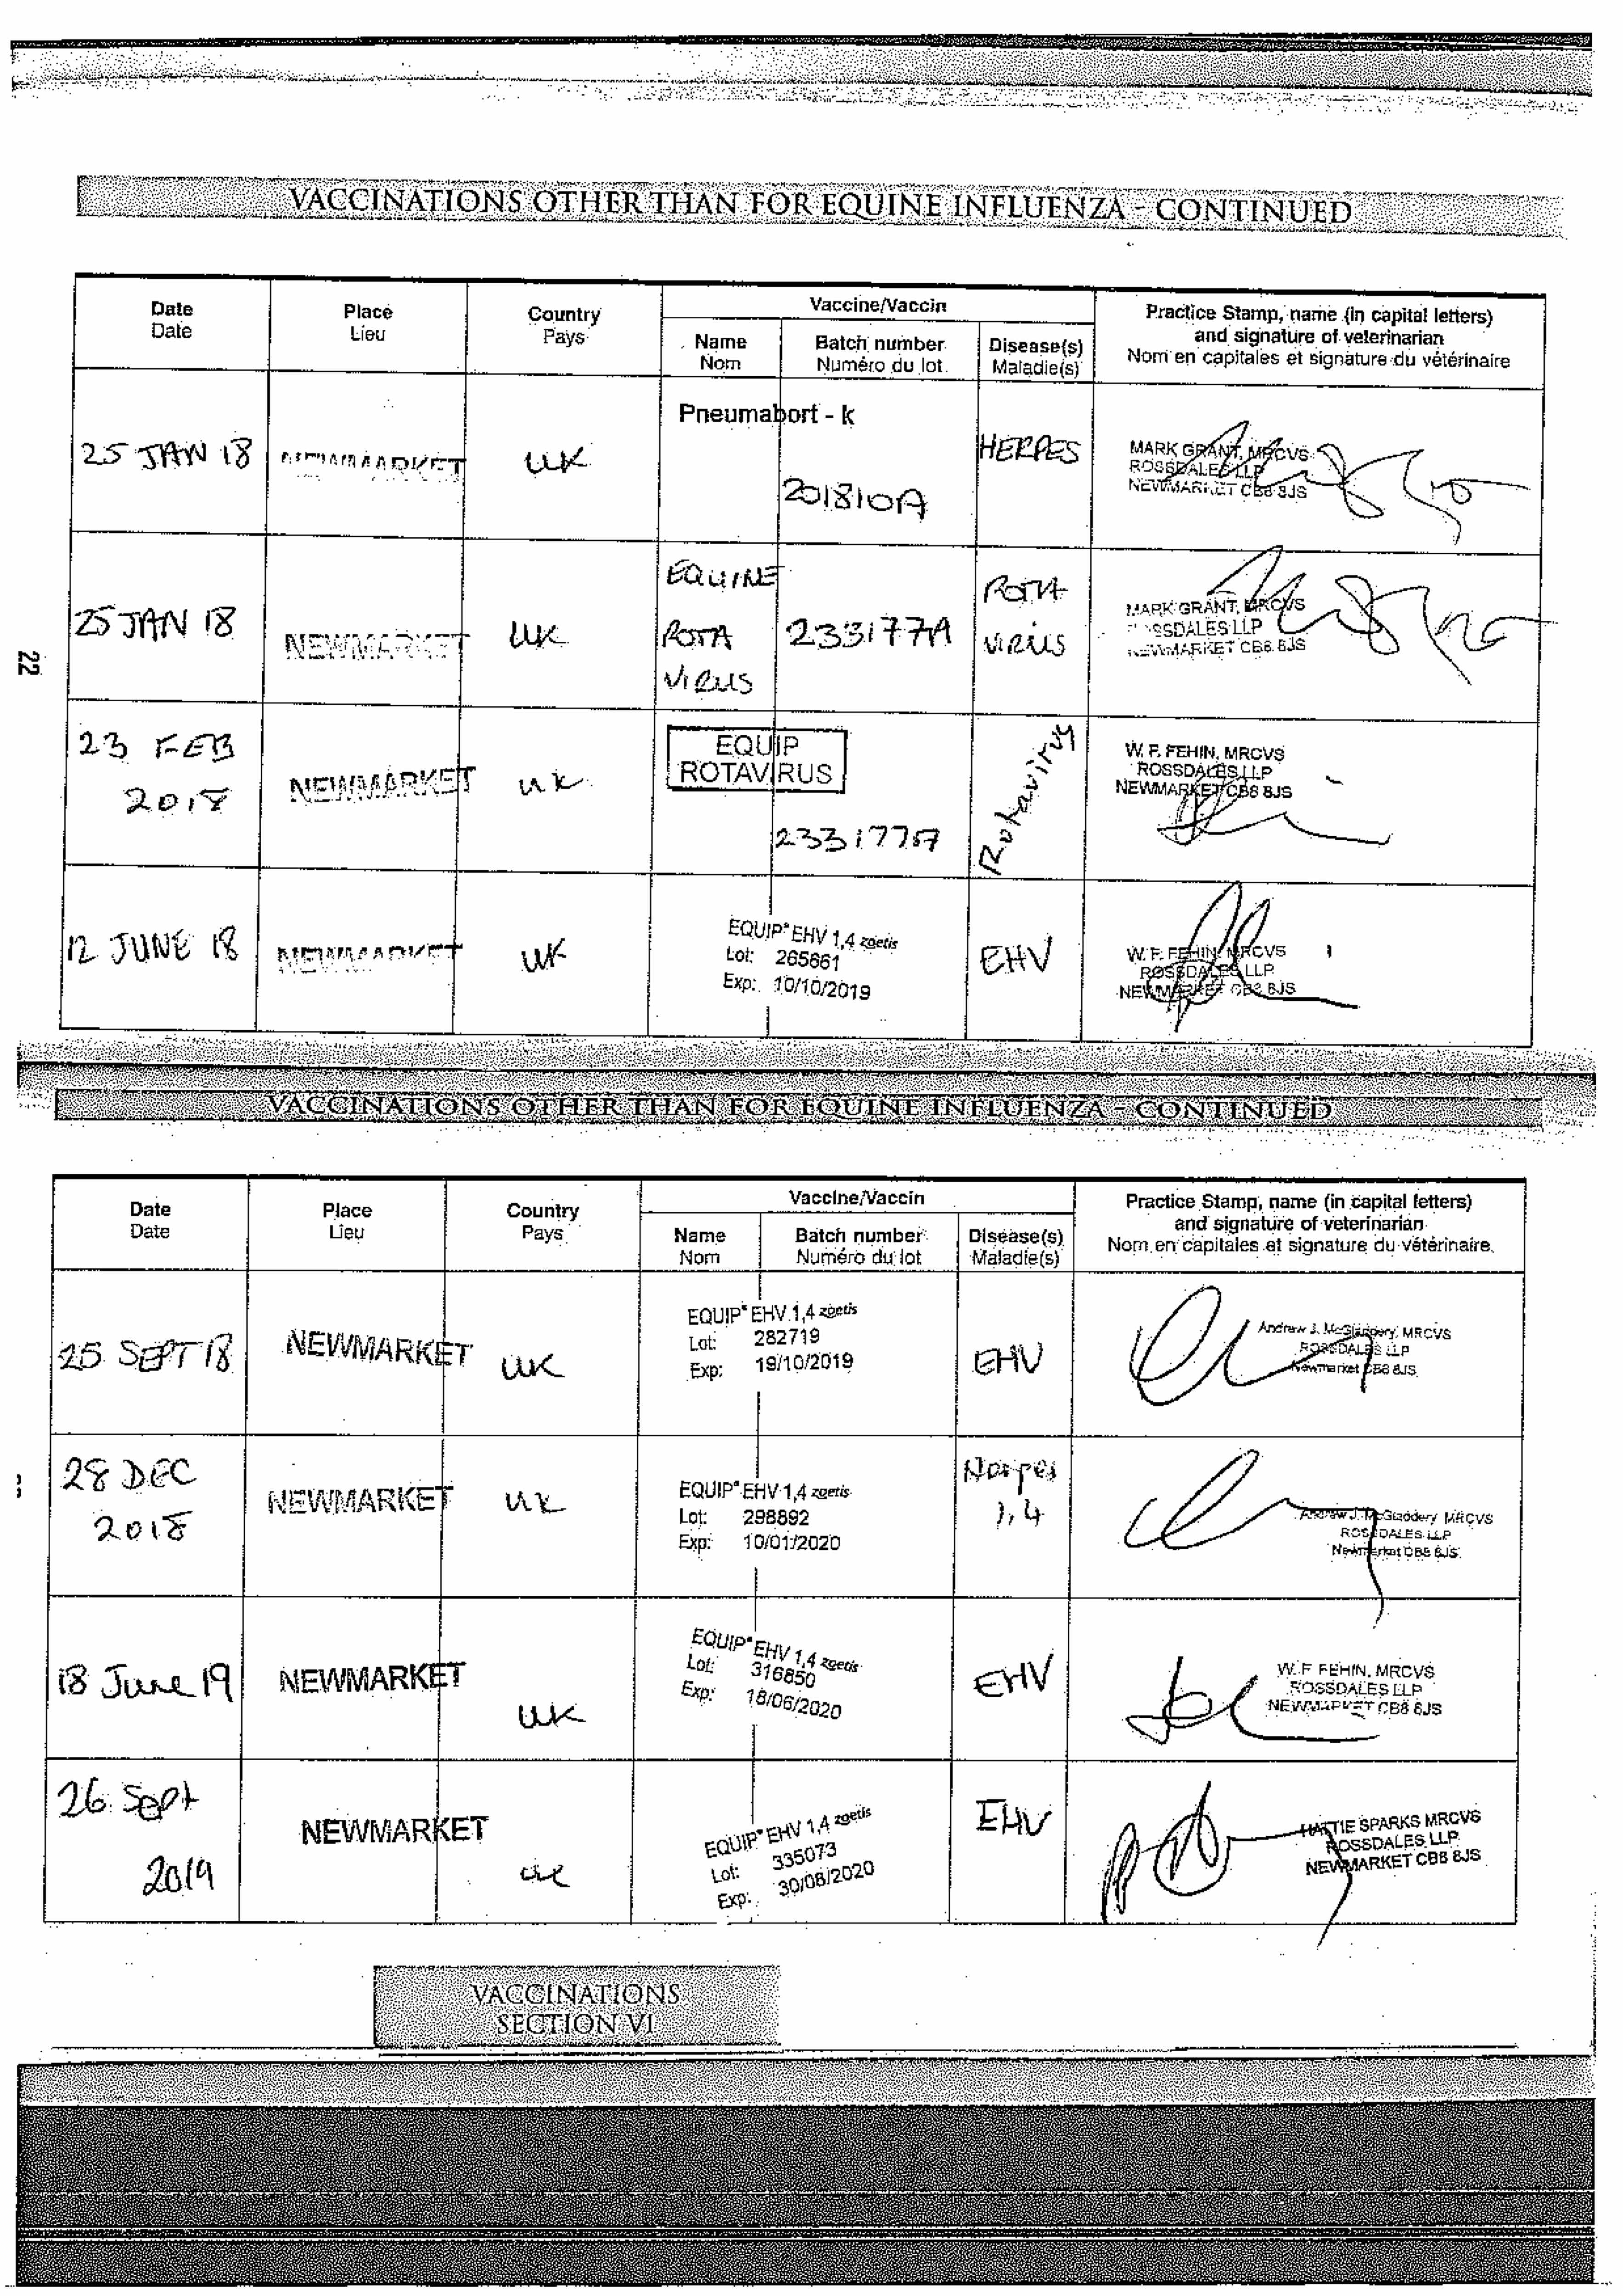 VACCINATIONS OTHER THAN FOR EQUINE INFLUENZA - CONTINUED
Date
Date
Place
Lieu
Country
Pays
Vaccine/Vaccin
Name
Nom
Batch number
Numéro du lot
Disease(s)
Maladie(s)
Practice Stamp, name (in capital letters)
and signature of veterinarian
Nom en capitales et signature du vétérinaire
25 JAN 18
NEWMARKET
UK
Pneumabort - k
201810A
HERPES
MARK GRANT, MRCVS
ROSSDALES LLP
NEWMARKET CB8 8JS
25 JAN 18
NEWMARKET
UK
EQUINE
ROTA
VIRUS
233177A
ROTA
VIRUS
MARK GRANT, MRCVS
ROSSDALES LLP
NEWMARKET CB8 8JS
22
23 FEB
2018
NEWMARKET
UK
EQUIP
ROTAVIRUS
233177A
Rotavirus
W. F. FEHIN, MRCVS
ROSSDALES LLP
NEWMARKET CB8 8JS
12 JUNE 18
NEWMARKET
UK
EQUIP EHV 1,4 zoetis
Lot: 265661
Exp: 10/10/2019
EHV
W. F. FEHIN, MRCVS
ROSSDALES LLP
NEWMARKET CB8 8JS
VACCINATIONS OTHER THAN FOR EQUINE INFLUENZA - CONTINUED
Date
Date
Place
Lieu
Country
Pays
Vaccine/Vaccin
Name
Nom
Batch number
Numéro du lot
Disease(s)
Maladie(s)
Practice Stamp, name (in capital letters)
and signature of veterinarian
Nom en capitales et signature du vétérinaire
25 SEPT 18
NEWMARKET
UK
EQUIP EHV 1,4 zoetis
Lot: 282719
Exp: 19/10/2019
EHV
Andrew J. McGladdery MRCVS
ROSSDALES LLP
Newmarket CB8 8JS
28 DEC
2018
NEWMARKET
UK
EQUIP EHV 1,4 zoetis
Lot: 298892
Exp: 10/01/2020
Herpes
1,4
Andrew J. McGladdery MRCVS
ROSSDALES LLP
Newmarket CB8 8JS
18 June 19
NEWMARKET
UK
EQUIP EHV 1,4 zoetis
Lot: 316850
Exp: 18/06/2020
EHV
W. F. FEHIN, MRCVS
ROSSDALES LLP
NEWMARKET CB8 8JS
26 Sept
2019
NEWMARKET
UK
EQUIP EHV 1,4 zoetis
Lot: 335073
Exp: 30/08/2020
EHV
HATTIE SPARKS MRCVS
ROSSDALES LLP
NEWMARKET CB8 8JS
VACCINATIONS
SECTION VI